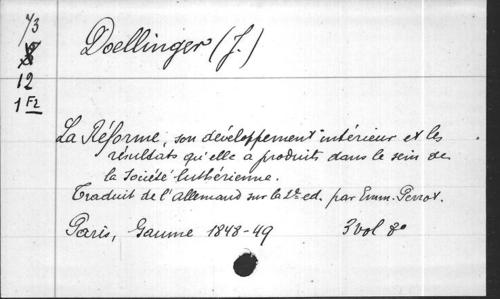 73
8
12
1 F2
Doellinger (J.)
La Réforme, son développement intérieur et les
résultats qu'elle a produits dans le sein de
la Société luthérienne.
Traduit de l'allemand sur la 2e ed. par Emm. Perrot.
Paris, Gaume 1848-49 3 vol 8o